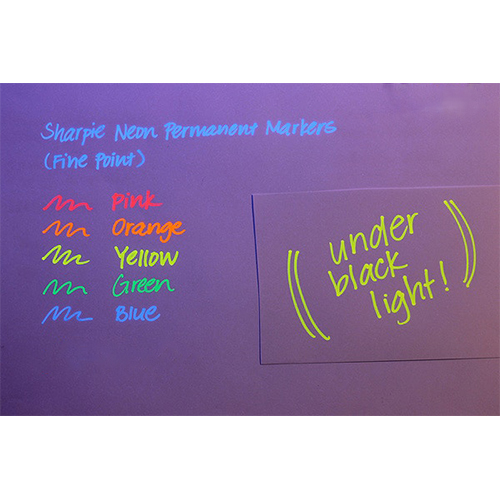 Sharpie Neon Permanent Markers
(Fine Point)
Pink
Orange
Yellow
Green
Blue
(( under
black
light! ))